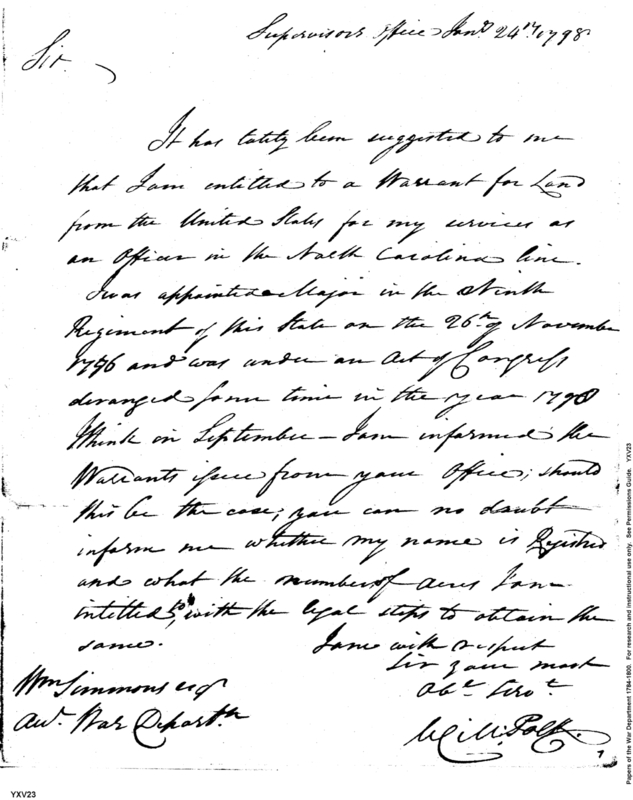 Supervisors Office Jany 24th 1798
Sir
It has lately been suggested to me
that I am entitled to a Warrant for Land
from the United States for my services as
an Officer in the North Carolina line.
I was appointed Major in the Ninth
Regiment of this State on the 26th of November
1776 and was under an Act of Congress
deranged some time in the year 1778
think in September – I am informed the
Warrants issue from your Office; should
this be the case; you can no doubt
inform me whether my name is Registred
and what the number of acres I am
intitled to, with the legal steps to obtain the
same.
I am with respect
Sir your most
Obt Servt
Will Polk
Wm Simmons esqr
Aud. War Departh
7
YXV23
Papers of the War Department 1784-1800. For research and instructional use only. See Permissions Guide. YXV23